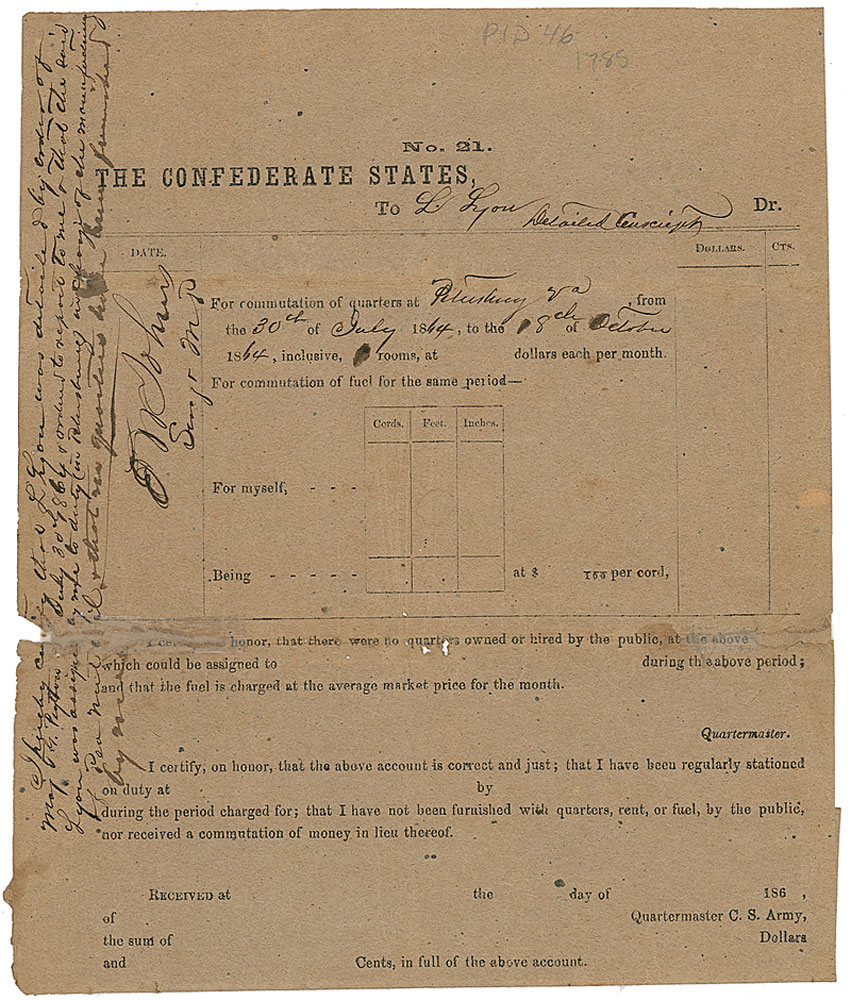 PID 46
1785
No. 21.
THE CONFEDERATE STATES,
To L Lyon Detailed Conscript Dr.
DATE. DOLLARS. CTS.
For commutation of quarters at Petersburg Va, from
the 30th of July 1864, to the 8th of October
1864, inclusive, rooms, at dollars each per month.
For commutation of fuel for the same period—
Cords. Feet. Inches.
For myself, - - -
Being - - - - - at $ 100 per cord,
I cer honor, that there were no quarters owned or hired by the public, at the above
which could be assigned to during the above period;
and that the fuel is charged at the average market price for the month.
Quartermaster.
I certify, on honor, that the above account is correct and just; that I have been regularly stationed
on duty at by
during the period charged for; that I have not been furnished with quarters, rent, or fuel, by the public,
nor received a commutation of money in lieu thereof.
RECEIVED at the day of 186 ,
of Quartermaster C. S. Army,
the sum of Dollars
and Cents, in full of the above account.
I hereby certify that L Lyon was detailed by order of
Maj July 30th 1864 & ordered to report to me & that the said
Lyon was assigned by me to duty in Petersburg
& that no quarters have been furnished
by me